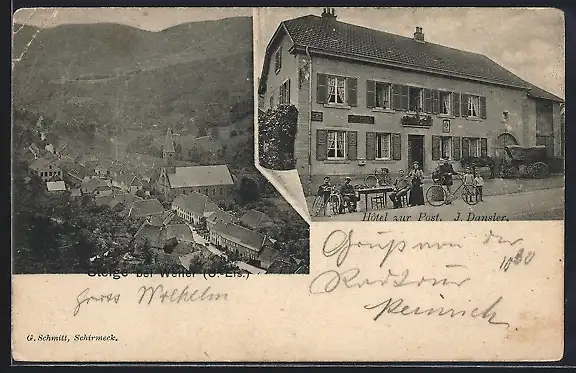 Hôtel zur Post. J. Dansler.
Steige bei Weiler (U.-Els.)
Gruss Wilhelm
Gruß von der
Radtour
Heinrich
G. Schmitt, Schirmeck.